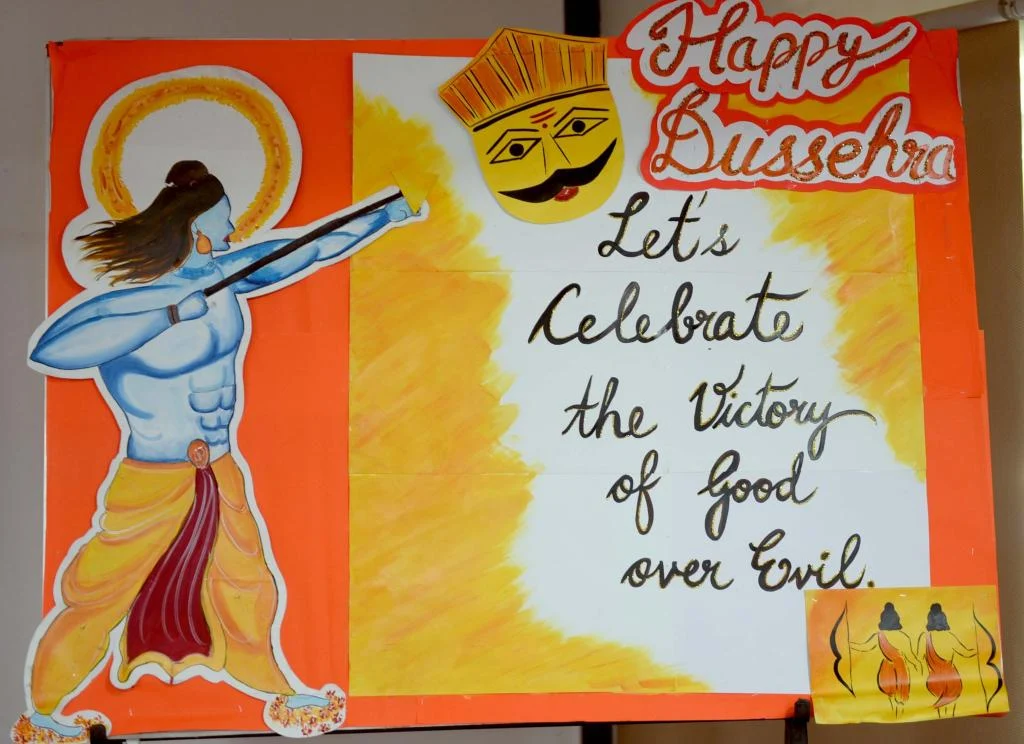 Happy
Dussehra
Let's
Celebrate
the Victory
of Good
over Evil.